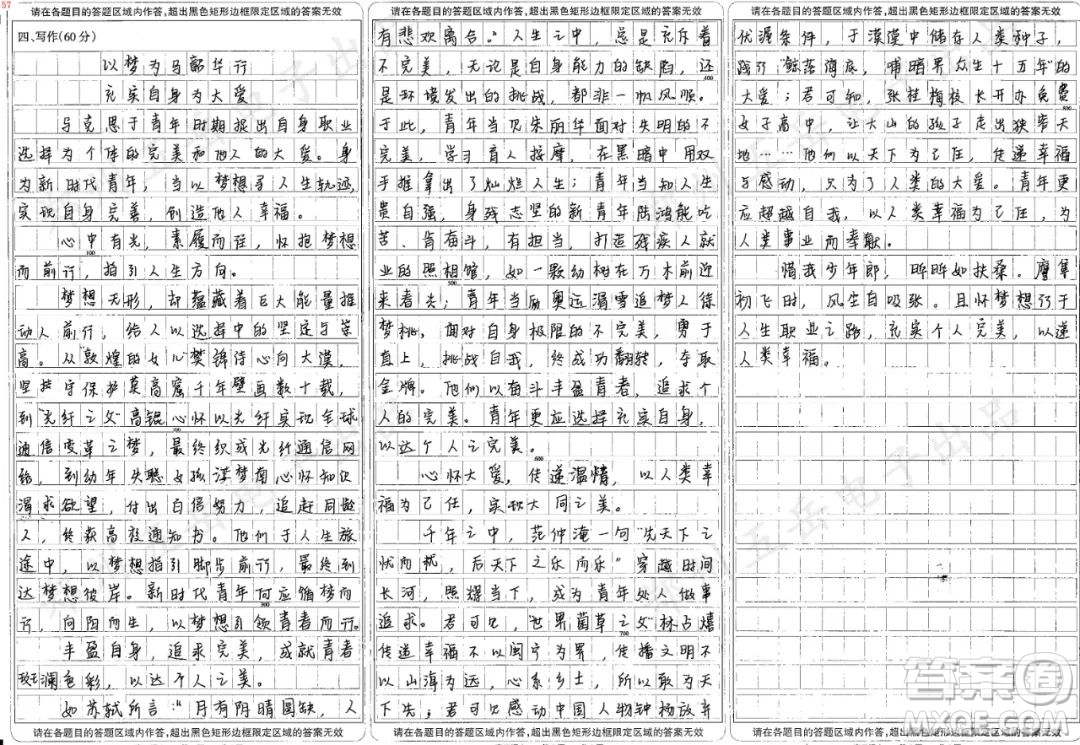 57
请在各题目的答题区域内作答,超出黑色矩形边框限定区域的答案无效
四、写作(60分)
以梦为马韶华行
充实自身为大爱
马克思于青年时期提出自身职业
选择为个体的完美和他人的大爱。身
为新时代青年,当以梦想寻人生轨迹,
实现自身完善,创造他人幸福。
心中有光,素履而往,怀抱梦想
而前行,指引人生方向。
梦想无形,却蕴藏着巨大能量推
动人前行,给人以选择中的坚定与崇
高。从敦煌的女儿樊锦诗心向大漠,
坚持守保护莫高窟千年壁画数十载,
到"光纤之父"高锟心怀以光纤实现全球
通信变革之梦,最终织成光纤通信网
络,到幼年失聪女孩谋梦楠心怀知识
渴求欲望,付出百倍努力,追赶同龄
人,终获高校通知书。他们于人生旅
途中,以梦想指引脚步前行,最终到
达梦想彼岸。新时代青年何应循梦而
行,向阳而生,以梦想引领青者而行。
丰盈自身,追求完美,成就青者
斑斓色彩,以达个人之美。
如苏轼所言:"月有阴晴圆缺,人
请在各题目的答题区域内作答,超出黑色矩形边框限定区域的答案无效
请在各题目的答题区域内作答,超出黑色矩形边框限定区域的答案无效
有悲欢离合。"人生之中,总是充斥着
不完美,无论是自身能力的缺陷,还
是环境发出的挑战,都非一帆风顺。
于此,青年当见朱丽华面对失明的不
完美,学习盲人按摩,在黑暗中用双
手推拿出了灿烂人生;青年当知人生
贵自强,身残志坚的新青年陈鸿能吃
苦、肯奋斗,有担当,打造残疾人就
业的照相馆,如一颗幼树在万木前迎
来春天;青年当励奥运滑雪追梦人徐
梦桃,面对自身极限的不完美,勇于
直上,挑战自我,终成功翻转,夺取
金牌。他们以奋斗丰盈青者,追求个
人的完美。青年更应选择充实自身,
以达个人之完美。
心怀大爱,传递温情,以人类幸
福为己任,实现大同之美。
千年之中,范仲淹一句"先天下之
忧而忧,后天下之乐而乐"穿越时间
长河,照耀当下,成为青年处人做事
追求。君可见,"世界菌草之父"林占熺
传递幸福不以闽宁为界,传播文明不
以山海为远,心系乡土,所以敢为天
下先;君可见感动中国人物钟扬放弃
请在各题目的答题区域内作答,超出黑色矩形边框限定区域的答案无效
请在各题目的答题区域内作答,超出黑色矩形边框限定区域的答案无效
优渥条件,于漠漠中储存人类种子,
践行"鲸落海底,哺暗界众生十五年"的
大爱;君可知,张桂梅校长开办免费
女子高中,让大山的孩子走出狭窄天
地……他们以天下为己任,传递幸福
与感动,只为了人类的大爱。青年更
应超越自我,以人类幸福为己任,为
人类事业而奉献。
惜我少年郎,晔晔如扶桑。鹰隼
初飞时,风生自吸张。且怀梦想行于
人生职业之路,充实个人完美,以递
人类幸福。
请在各题目的答题区域内作答,超出黑色矩形边框限定区域的答案无效
答案港
MXQE.COM